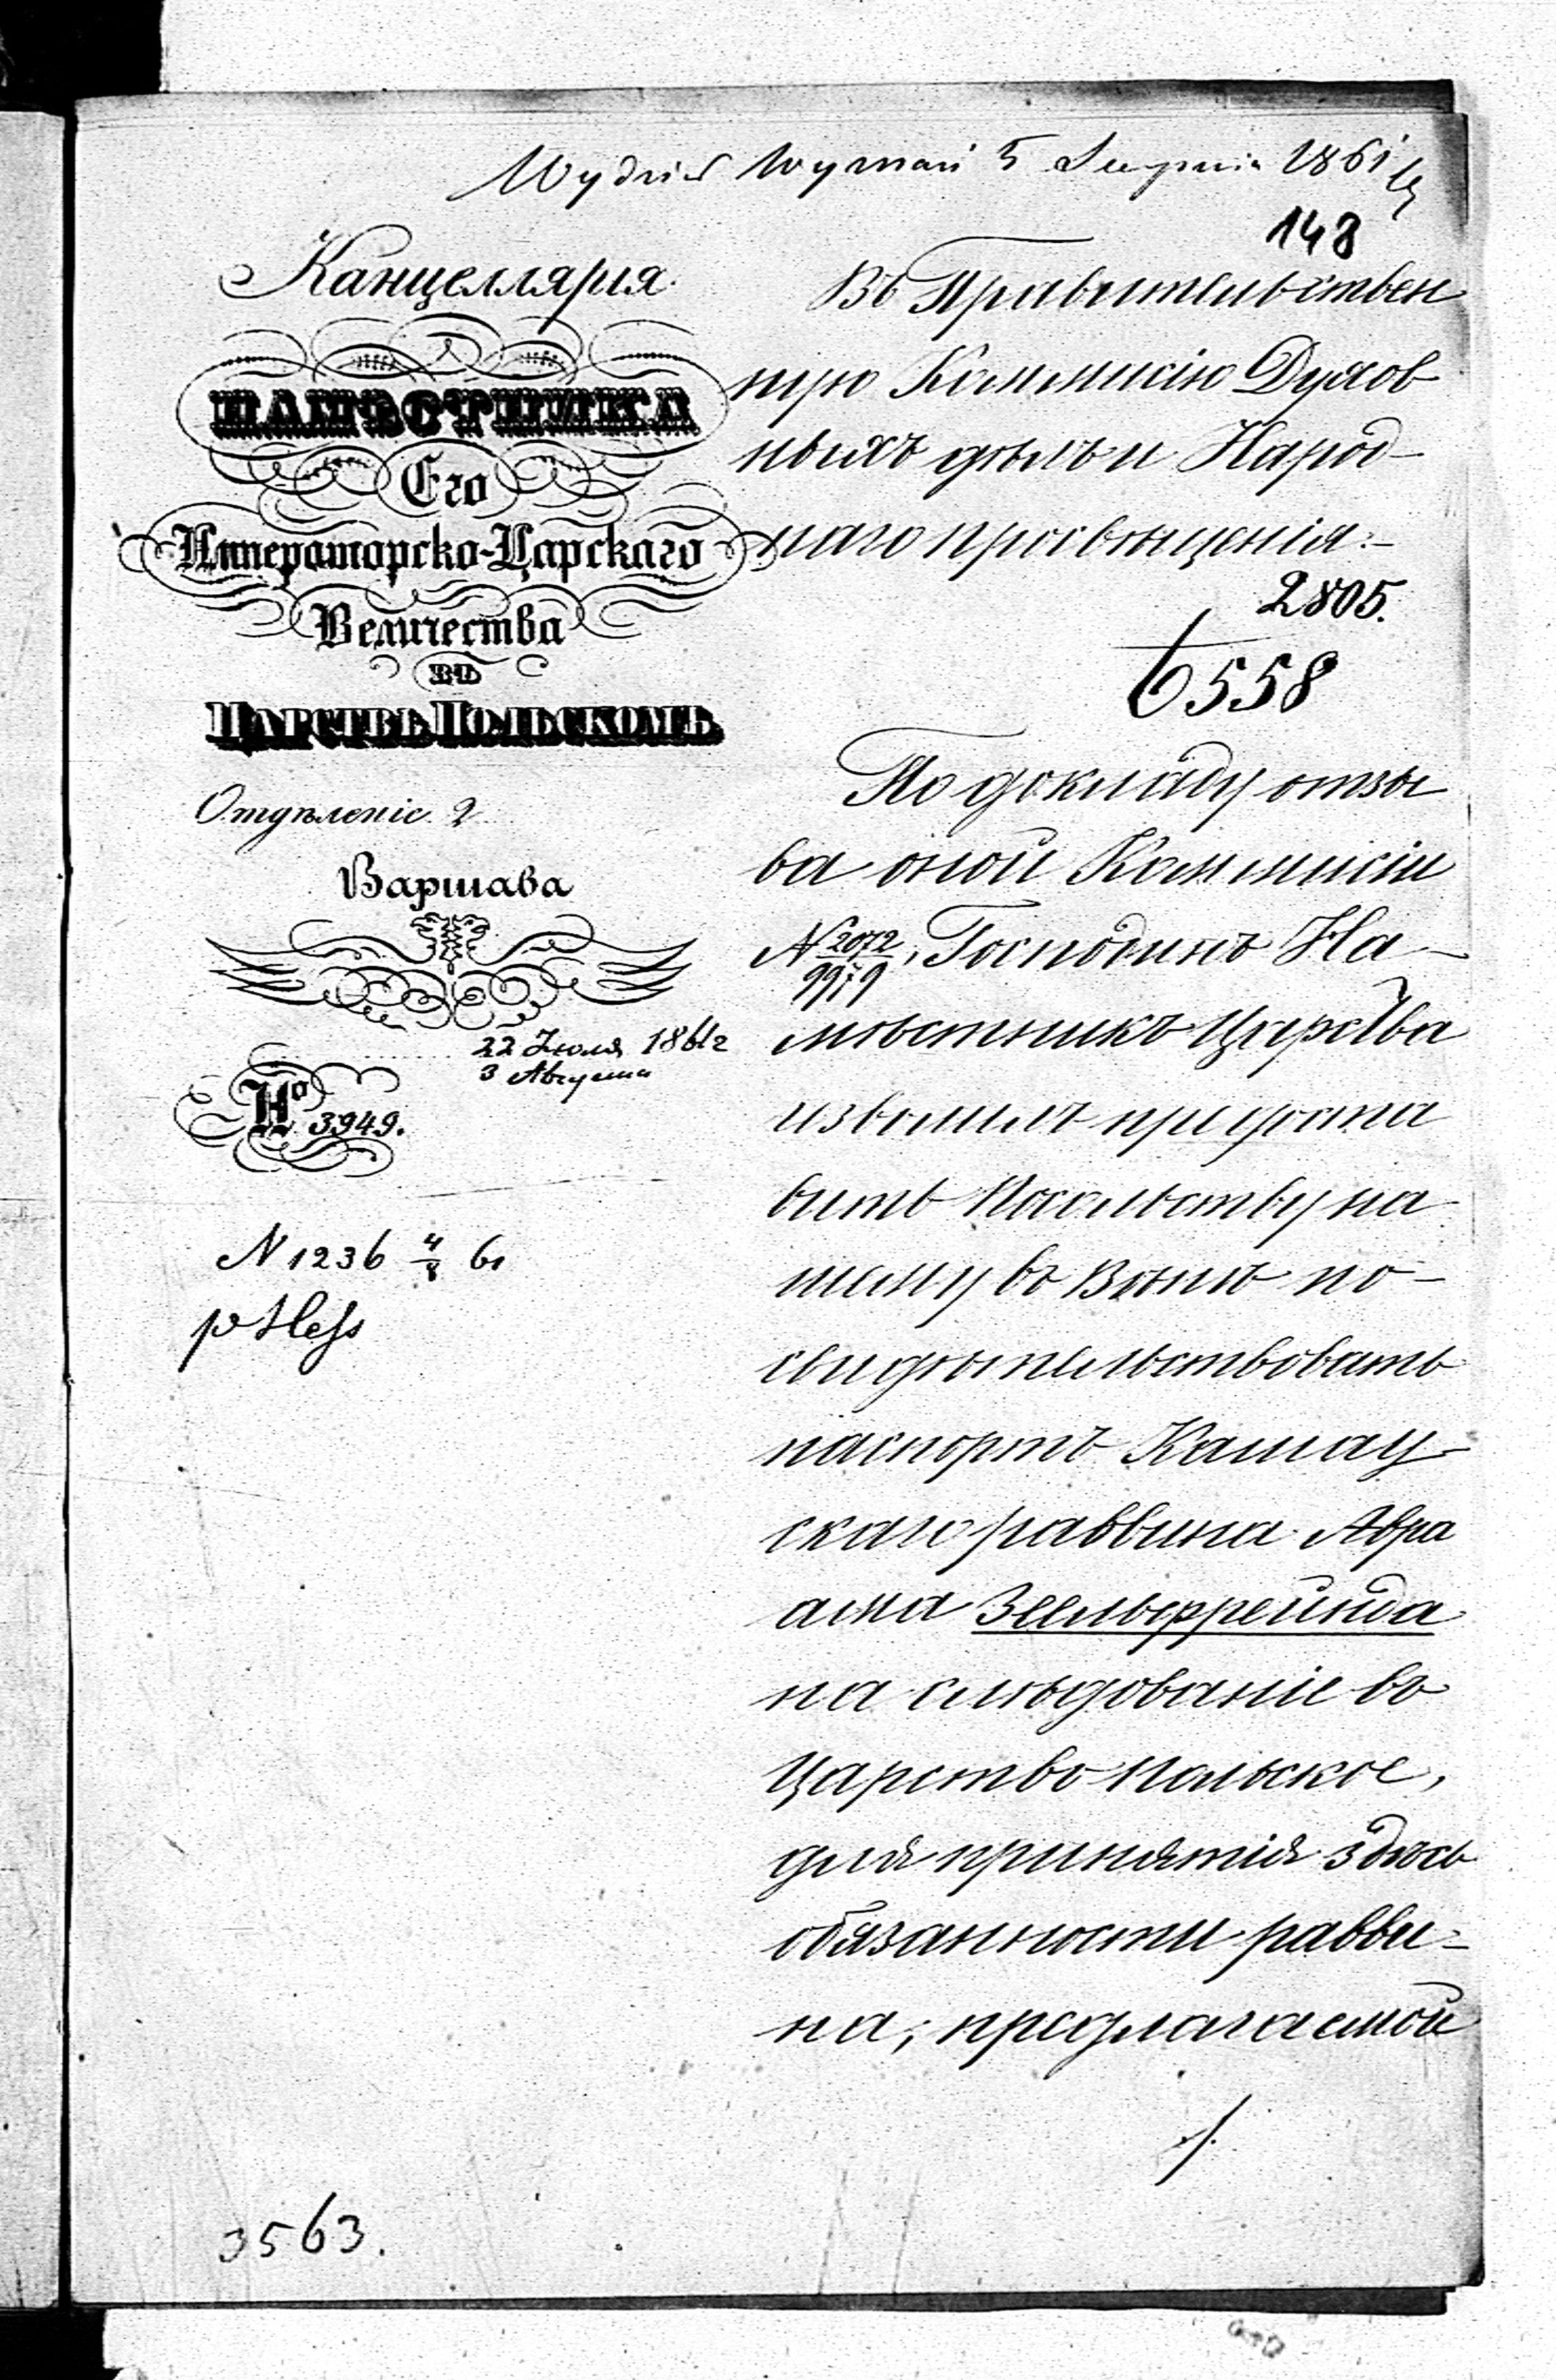 Wydział Wyznań 5 Sierpnia 1861
148
Канцеллярія
НАМѢСТНИКА
Его
Императорско-Царскаго
Величества
ВЪ
ЦАРСТВѢ ПОЛЬСКОМЪ.
Отдѣленіе 2
Варшава
22 Іюля 1861 г
3 Августа
Nо 3949.
N 1236 4/8 61
Въ Правительствен
ную Коммисію Духов
ныхъ дѣлъ и Народ-
наго просвѣщенія.-
2805.
6558
По докладу отзы
ва оной Коммисіи
N 2072/9979, Господинъ На-
мѣстникъ Царства
изволилъ предоста
вить Посольству на
шему въ Вѣнѣ по-
свидѣтельствовать
паспортъ Кашау-
скаго раввина Авра
ама Зеельфрейнда
на слѣдованіе въ
Царство Польское,
для принятія здѣсь
обязанности равви-
на, предлагаемой
./.
3563.